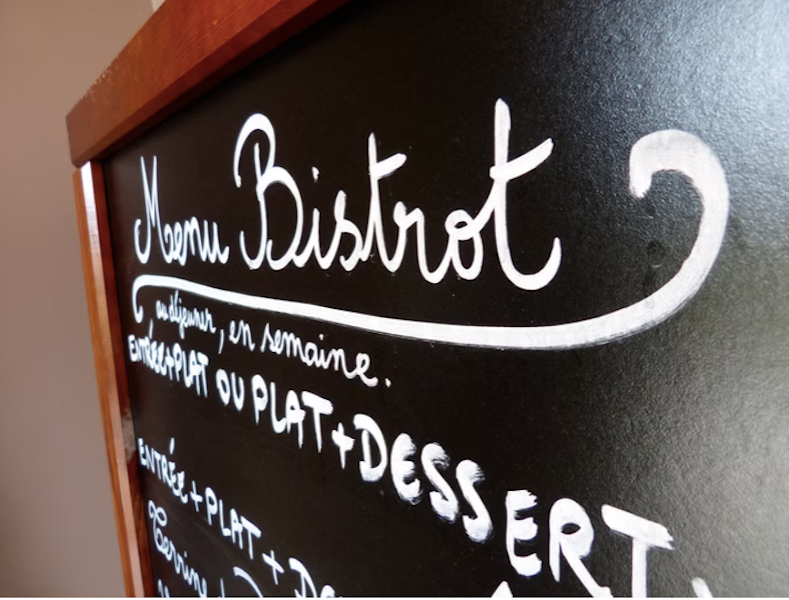 Menu Bistrot
au déjeuner, en semaine.
ENTRÉE+PLAT OU PLAT+DESSERT
ENTRÉE+PLAT+DE
Terrine